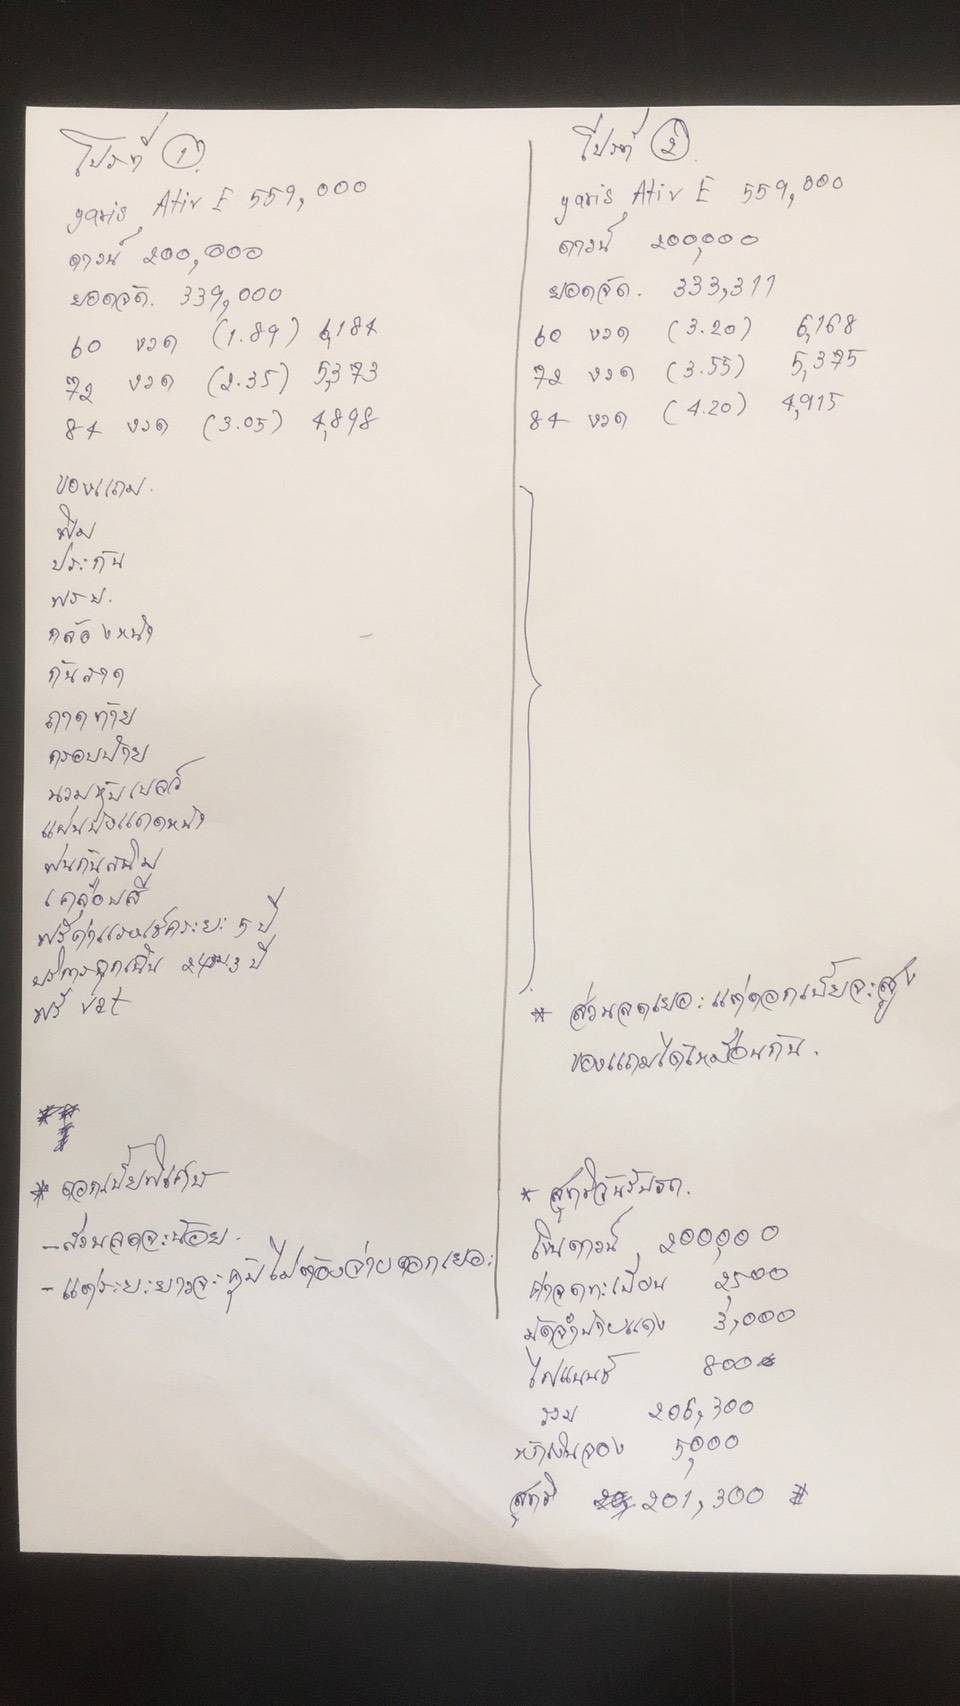 โปรที่ ①.
yaris Ativ E 559,000
ดาวน์ 200,000
ยอดจัด. 339,000
60 งวด (1.89) 6,184
72 งวด (2.35) 5,373
84 งวด (3.05) 4,898
ของแถม.
ฟิม
ประกัน
พรบ.
กล้องหน้า
กันสาด
ถาดท้าย
ครอบป้าย
นวมหุ้มเบลว์
แผ่นบังแดดหน้า
พ่นกันสนิม
เคลือบสี
ฟรีค่าแรงเช็คระยะ 5 ปี
บริการฉุกเฉิน 24ชม 3 ปี
ฟรี vat
* ดอกเบี้ยพิเศษ
- ส่วนลดจะน้อย.
- แต่ระยะยาวจะคุ้มไม่ต้องจ่ายดอกเยอะ
โปรที่ ②
yaris Ativ E 559,000
ดาวน์ 200,000
ยอดจัด. 333,311
60 งวด (3.20) 6,168
72 งวด (3.55) 5,375
84 งวด (4.20) 4,915
* ส่วนลดเยอะ แต่ดอกเบี้ยจะสูง
ของแถมได้เหมือนกัน.
* สุทธิวันรับรถ.
เงินดาวน์ 200,000
ค่าจดทะเบียน 2,500
มัดจำป้ายแดง 3,000
ไฟแนนซ์ 800
รวม 206,300
หักเงินจอง 5,000
สุทธิ 201,300 #